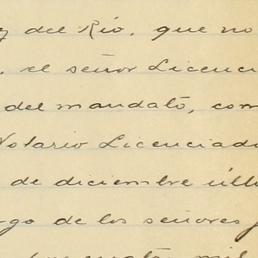 y del Río, que no
, el señor Licenci
del mandato, com
Notario Licenciado
de diciembre últi
go de los señores
cuatro mil